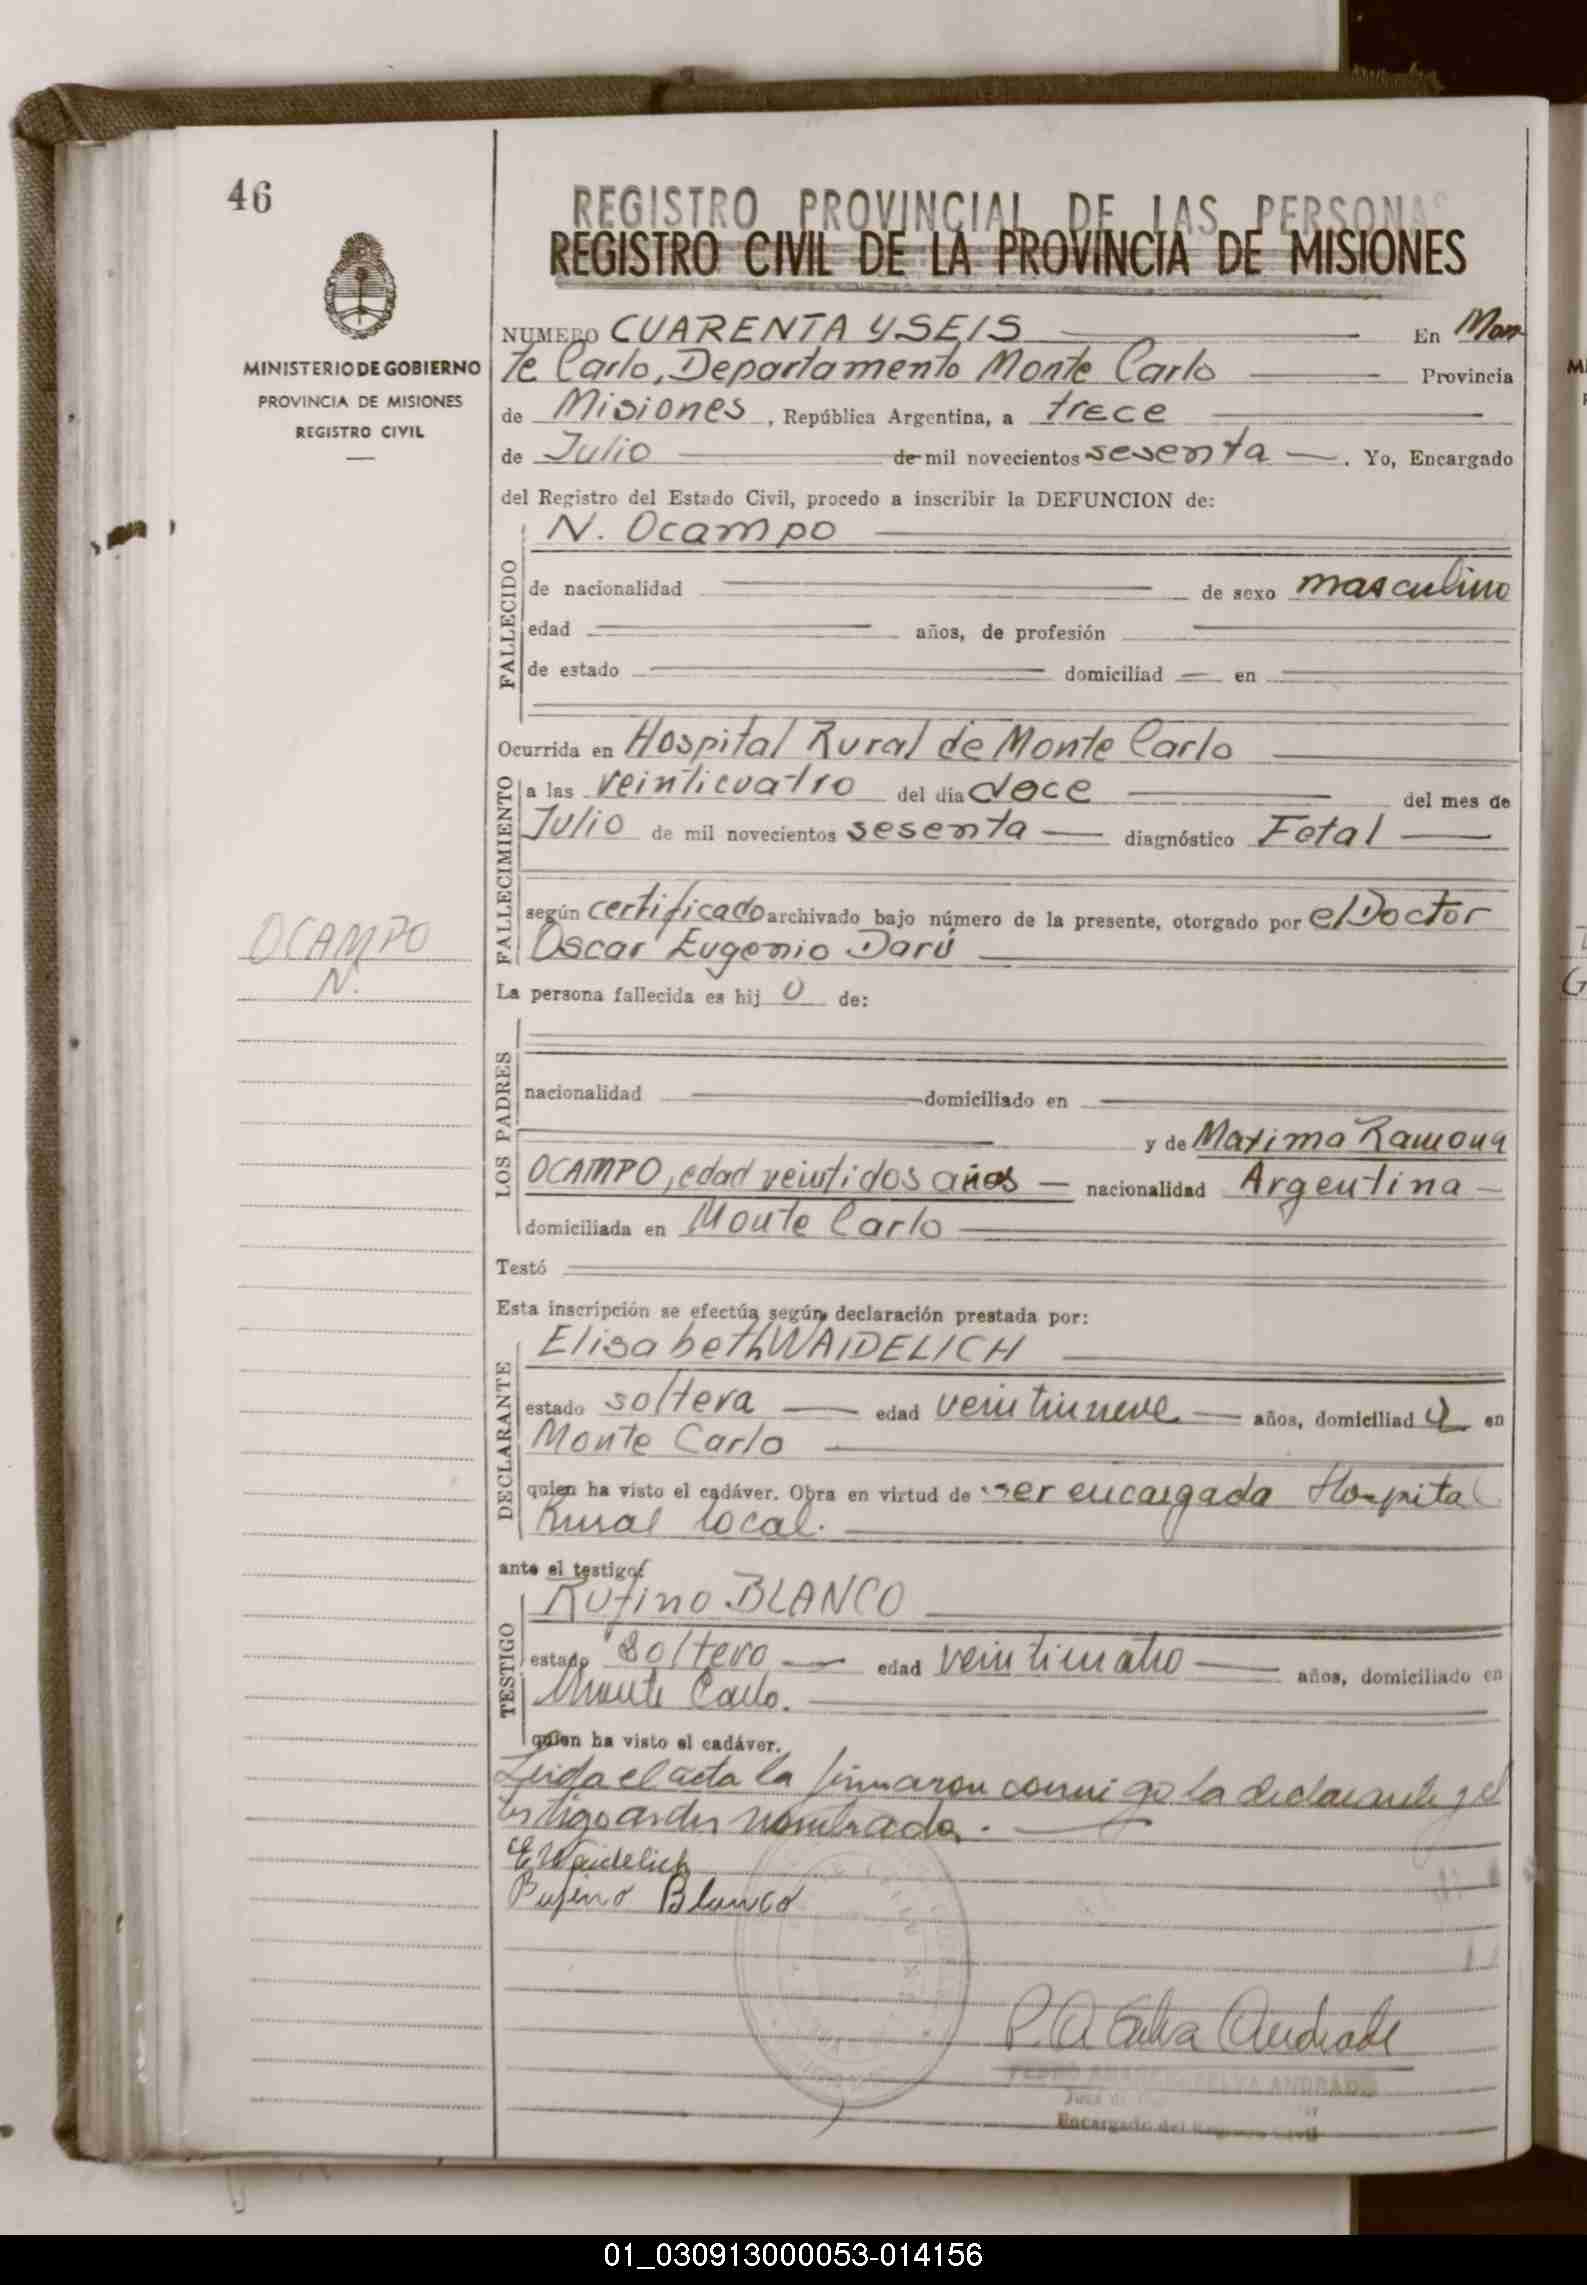 46
REGISTRO PROVINCIAL DE LAS PERSONAS
REGISTRO CIVIL DE LA PROVINCIA DE MISIONES
MINISTERIO DE GOBIERNO
PROVINCIA DE MISIONES
REGISTRO CIVIL
NUMERO CUARENTA Y SEIS En Mon
te Carlo, Departamento Monte Carlo Provincia
de Misiones, República Argentina, a trece
de Julio de mil novecientos sesenta. Yo, Encargado
del Registro del Estado Civil, procedo a inscribir la DEFUNCION de:
FALLECIDO
N. Ocampo
de nacionalidad de sexo masculino
edad años, de profesión
de estado domiciliad en
Ocurrida en Hospital Rural de Monte Carlo
FALLECIMIENTO
a las veinticuatro del día doce del mes de
Julio de mil novecientos sesenta diagnóstico Fetal
según certificado archivado bajo número de la presente, otorgado por el Doctor
Oscar Eugenio Darú
OCAMPO
N.
La persona fallecida es hijo de:
LOS PADRES
nacionalidad domiciliado en
y de Maxima Ramona
OCAMPO, edad veintidos años nacionalidad Argentina
domiciliada en Monte Carlo
Testó
Esta inscripción se efectúa según declaración prestada por:
DECLARANTE
Elisabeth WAIDELICH
estado soltera edad veintinueve años, domiciliada en
Monte Carlo
quien ha visto el cadáver. Obra en virtud de ser encargada Hospital
Rural local.
ante el testigo:
TESTIGO
Rufino BLANCO
estado soltero edad veinticuatro años, domiciliado en
Monte Carlo.
quien ha visto el cadáver.
Leida el acta la firmaron conmigo la declarante y el
testigo antes nombrados.
E Waidelich
Rufino Blanco
P. A Selva Andrade
SELVA ANDRADE
Encargado del Registro Civil
01_030913000053-014156